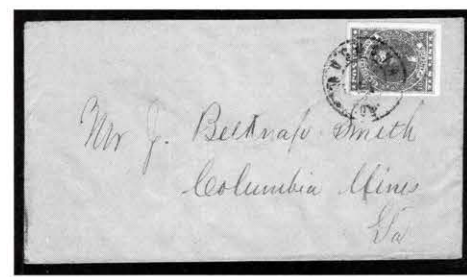 Mr J. Belknap Smith
Columbia Mines
Ga